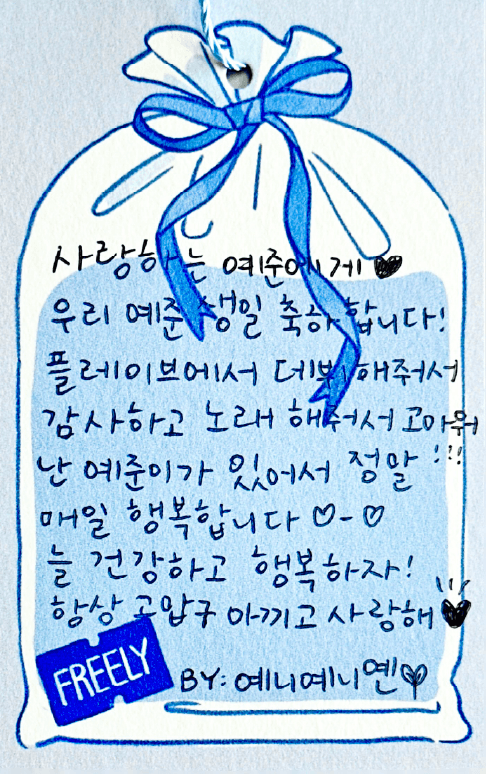 사랑하는 예준에게 ♥
우리 예준 생일 축하합니다!
플레이브에서 데뷔해줘서
감사하고 노래 해줘서 고마워!!!
난 예준이가 있어서 정말
매일 행복합니다 ♡-♡
늘 건강하고 행복하자!
항상 고맙구 아끼고 사랑해 ♥
FREELY
BY: 예니예니옌